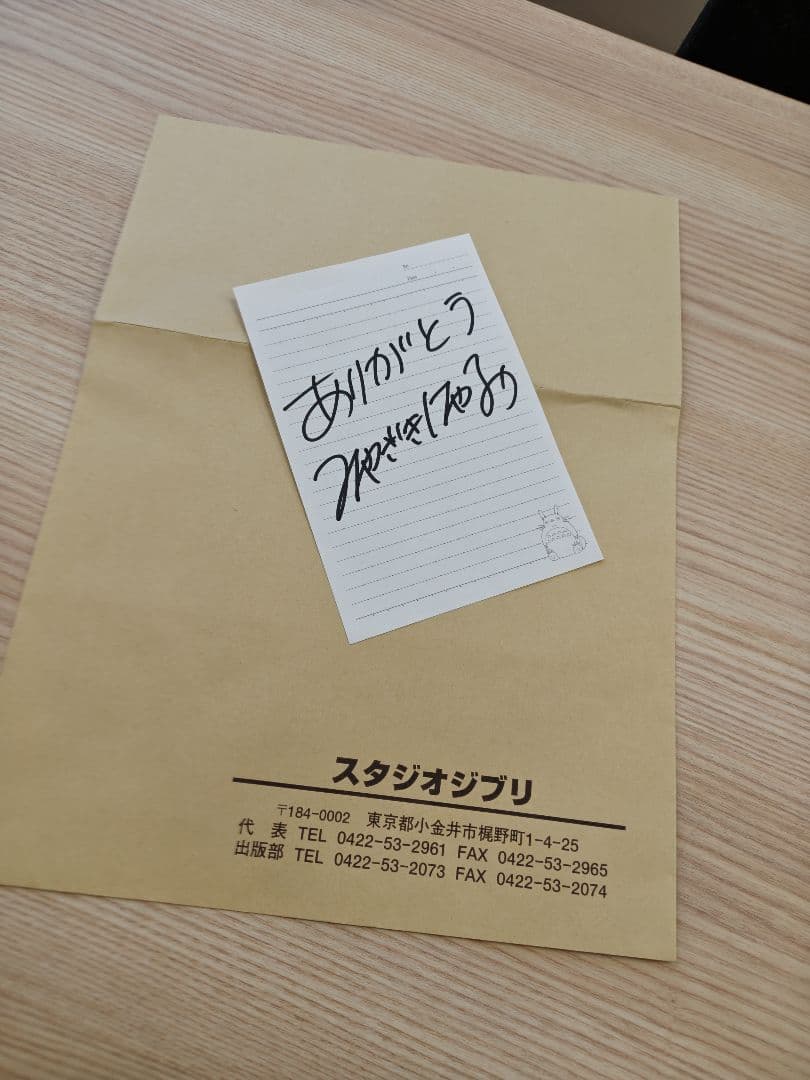 No.
Date
ありがとう
みやざきはやお
スタジオジブリ
〒184-0002 東京都小金井市梶野町1-4-25
代 表 TEL 0422-53-2961 FAX 0422-53-2965
出版部 TEL 0422-53-2073 FAX 0422-53-2074